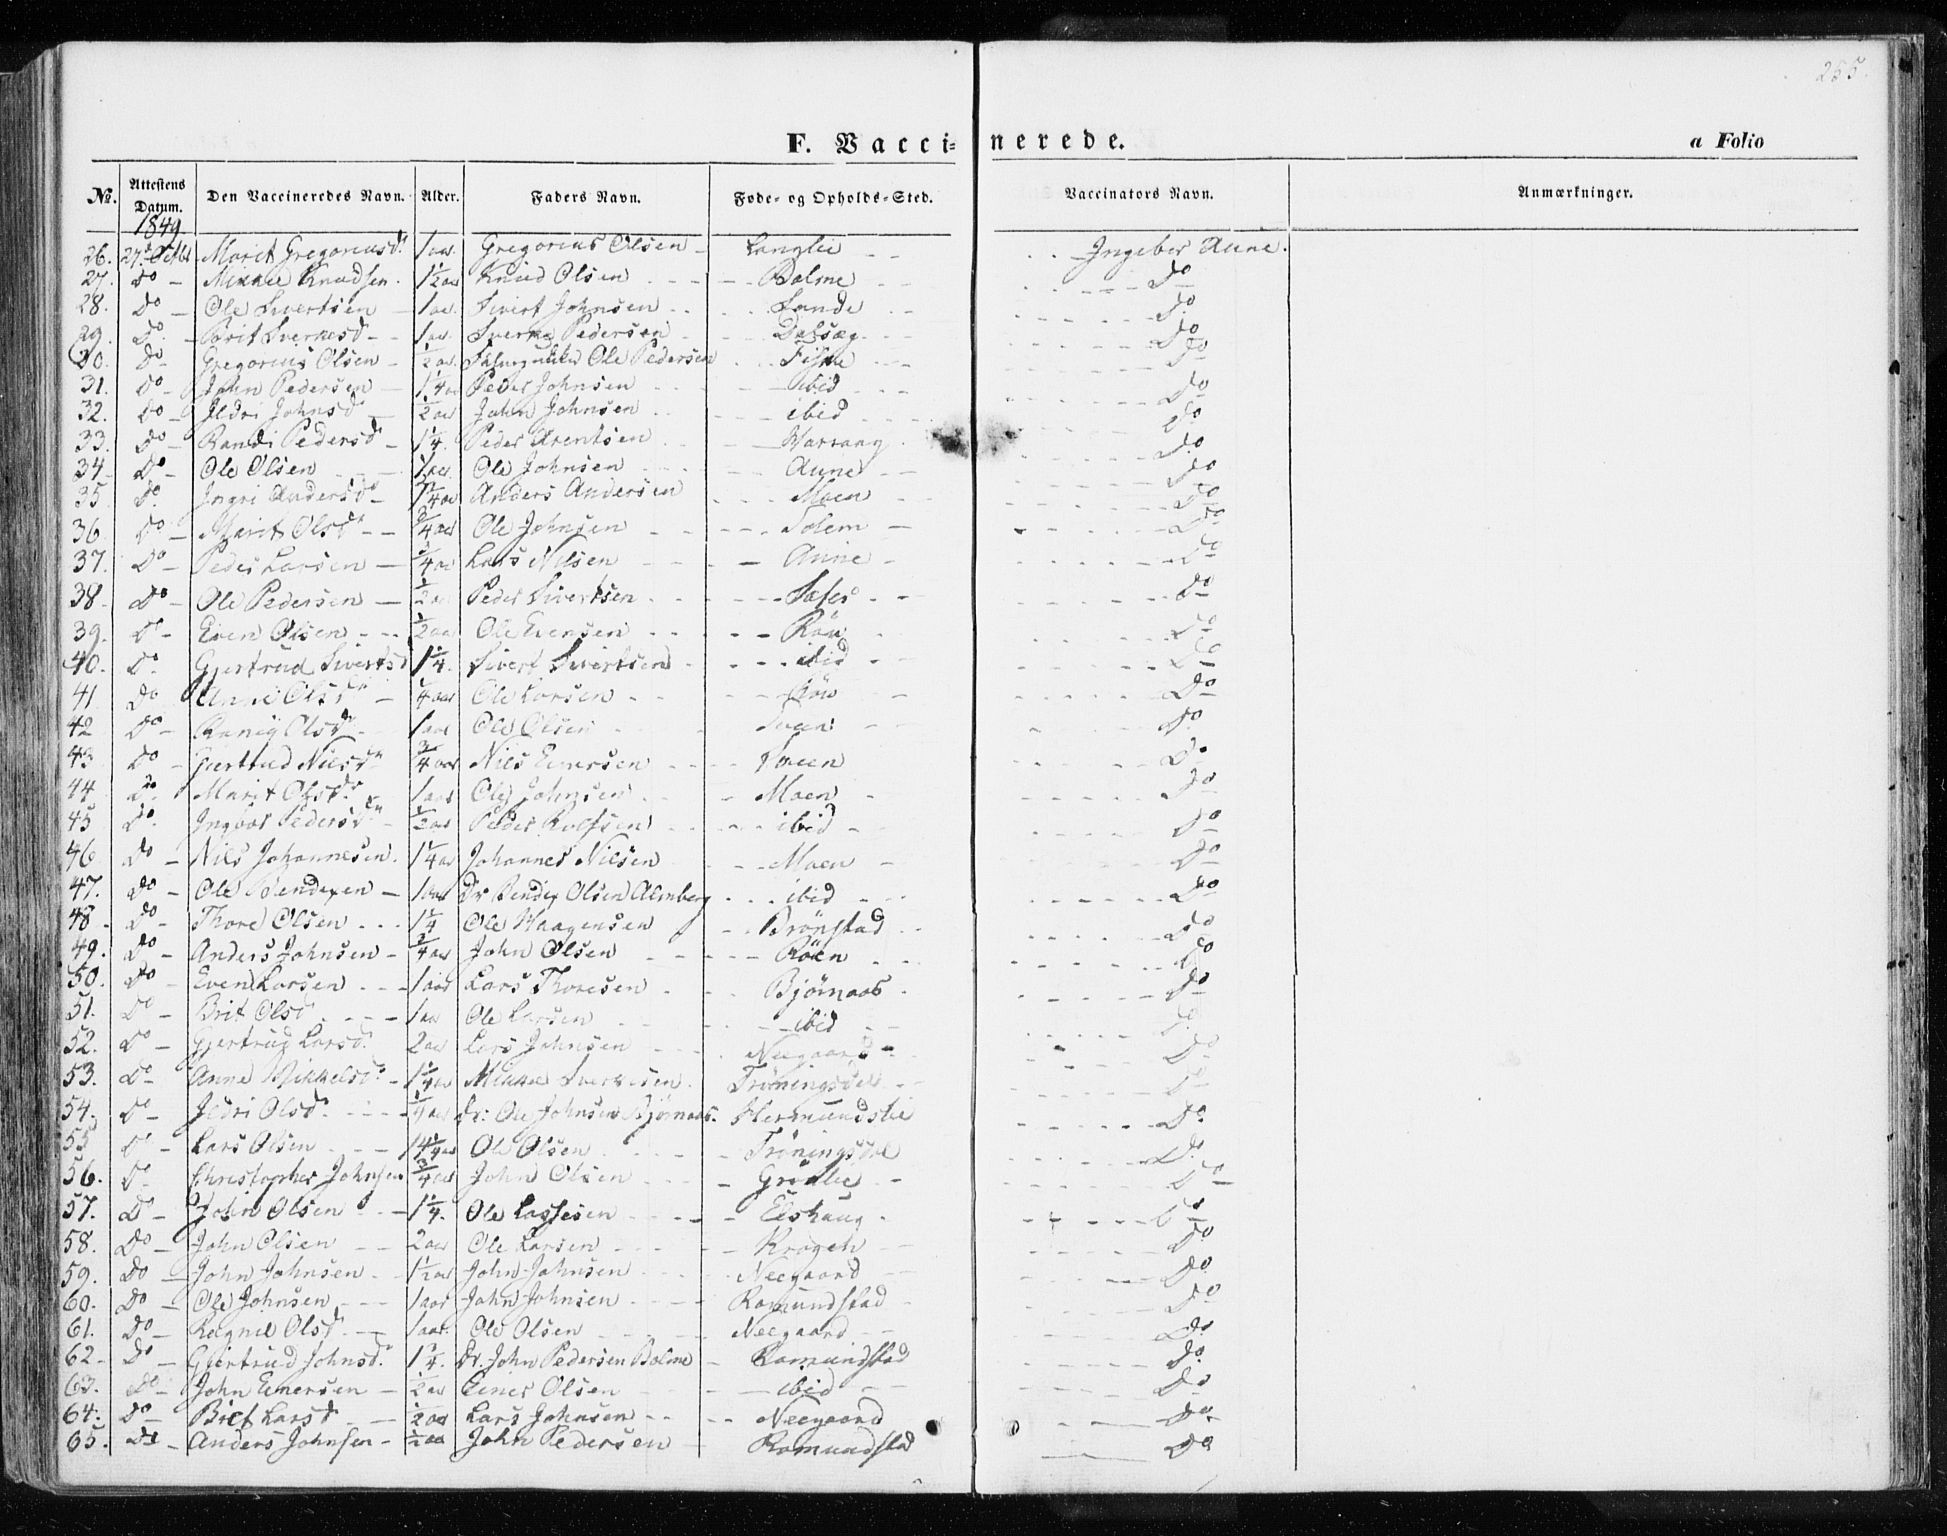 255.
F. Vaccinerede.
a Folio
№. Attestens Datum. Den Vaccineredes Navn. Alder. Faders Navn. Føde- og Opholds-Sted. Vaccinators Navn. Anmærkninger.
1849
26. 27. Marit Gregoriusd. 1 aar Gregorius Olsen Langlie Ingeber Aune.
27. Do Mikkel Knudsen 1½ aar Knud Olsen Bolme Do
28. Do Ole Sivertsen 1 aar Sivert Johnsen Lande Do
29. Do Brit Sverkesd. 1 aar Sverke Pedersen Dalsæg Do
30. Do Gregorius Olsen ½ aar Ole Pedersen Fiske Do
31. Do John Pedersen 1¼ aar Peder Johnsen ibid Do
32. Do Ildri Johnsd. ½ aar John Johnsen ibid Do
33. Do Randi Pedersd. 1¼ Peder Arentsen Do
34. Do Ole Olsen 1 aar Ole Johnsen Aune Do
35. Do Ingri Andersd. 1¼ aar Anders Andersen Moen Do
36. Do Marit Olsd. ¾ aar Ole Johnsen Solem Do
37. Do Peder Larsen ¾ aar Lars Nilsen Aune Do
38. Do Ole Pedersen ½ aar Peder Sivertsen Do
39. Do Even Olsen ½ aar Ole Evensen Røn Do
40. Do Gjertrud Sivertsd 1¼ Sivert Sivertsen ibid Do
41 Do Anne Olsd. ¼ aar Ole Larsen Røn Do
42 Do Olsd. 1 aar Ole Olsen Do
43 Do Giertrud Nilsd. ¾ aar Nils Einersen Do
44 Do Marit Olsd. 1 aar Ole Johnsen Moen Do
45 Do Pedersd. ½ aar Peder Rolfsen ibid Do
46 Do Nils Johannesen 1¼ aar Johannes Nilsen Moen Do
47. Do Ole Bendixen 1 aar Dr Bendix Olsen Almberg ibid Do
48 Do Thore Olsen 1¼ Ole Haagensen Brønstad Do
49. Do Anders Johnsen ¾ aar John Olsen Røen Do
50. Do Even Larsen 1 aar Lars Thoresen Bjørnaas Do
51. Do Brit Olsd. 1 aar Ole Larsen ibid Do
52. Do Gjertrud Larsd. 2 aar Lars Johnsen Neegaard Do
53. Do Anne Mikkelsd. 1¼ aar Mikkel Sverkesen Trøningsdal Do
54. Do Ildri Olsd. ¼ aar Dr: Ole Johnsen Bjørnaas Hermundslie Do
55 Do Lars Olsen 1¼ aar Ole Olsen Trøningsdal Do
56. Do Christopher Johnsen ¾ aar John Olsen Grønlie Do
57. Do John Olsen 1¼ Ole Lassesen Elshaug Do
58. Do John Olsen 2 aar Ole Larsen Krogeh Do
59. Do John Johnsen 1½ aar John Johnsen Neegaard Do
60. Do Ole Johnsen 1 aar John Johnsen Romundstad Do
61. Do Ragnil Olsd. 1 aar Ole Olsen Neegaard Do
62. Do Giertrud Johnsd. 1¼ Dr. John Pedersen Bolme Romundstad Do
63. Do John Einersen ½ aar Einer Olsen ibid Do
64. Do Brit Larsd. ½ aar Lars Johnsen Neegaard Do
65. Do Anders Johnsen ½ aar John Pedersen Romundstad Do